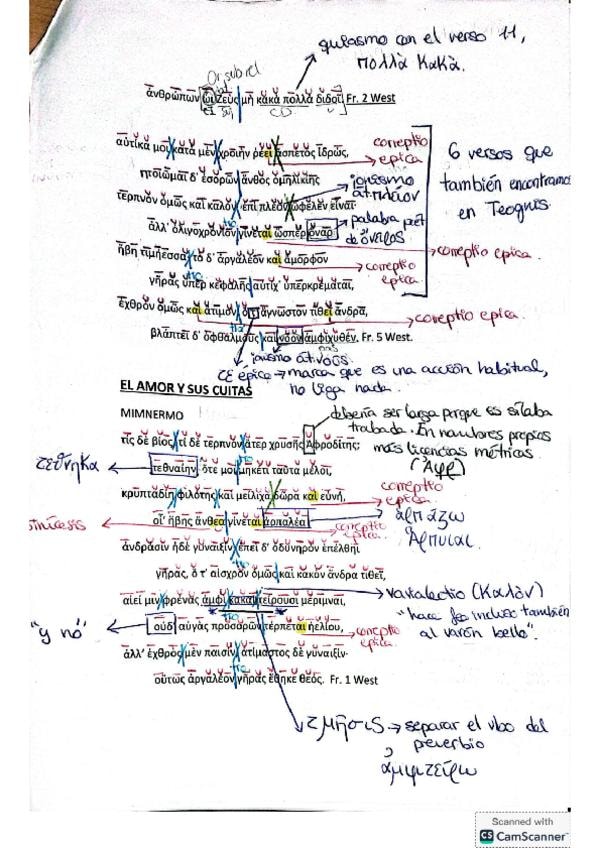 quiasmo con el verso 11,
πολλὰ κακά.
Or. sub rel
ἀνθρώπων ᾧ Ζεὺς μὴ κακὰ πολλὰ διδοῖ. Fr. 2 West
αὐτίκα μοι κατὰ μὲν χροιὴν ῥέει ἄσπετος ἱδρώς,
correptio
epica
πτοιῶμαι δ' ἐσορῶν ἄνθος ὁμηλικίης
τερπνὸν ὁμῶς καὶ καλόν, ἐπὶ πλέον ὤφελεν εἶναι
jonismo
át. πλεῖον
ἀλλ' ὀλιγοχρόνιον γίνεται ὥσπερ ὄναρ
palabra poét
de ὄνειρος
6 versos que
también encontramos
en Teognis
correptio epica.
ἥβη τιμήεσσα· τὸ δ' ἀργαλέον καὶ ἄμορφον
correptio
epica.
γῆρας ὑπὲρ κεφαλῆς αὐτίχ' ὑπερκρέμαται,
ἐχθρὸν ὁμῶς καὶ ἄτιμον, ὅ τ' ἄγνωστον τιθεῖ ἄνδρα,
correptio epica.
βλάπτει δ' ὀφθαλμοὺς καὶ νόον ἀμφιχυθέν. Fr. 5 West.
jonismo át. νοῦς
τε épico → marca que es una acción habitual,
no liga nada.
EL AMOR Y SUS CUITAS
MIMNERMO
debería ser larga porque es sílaba
trabada. En nombres propios
más licencias métricas.
(Ἀφρ)
τίς δὲ βίος, τί δὲ τερπνὸν ἄτερ χρυσῆς Ἀφροδίτης;
τέθνηκα
τεθναίην, ὅτε μοι μηκέτι ταῦτα μέλοι,
κρυπταδίη φιλότης καὶ μείλιχα δῶρα καὶ εὐνή,
correptio
epica
οἷ' ἥβης ἄνθεα γίνεται ἁρπαλέα
sinicesis
correptio
epica.
ἁρπάζω
Ἅρπυιαι.
ἀνδράσιν ἠδὲ γυναιξίν· ἐπεὶ δ' ὀδυνηρὸν ἐπέλθῃ
γῆρας, ὅ τ' αἰσχρὸν ὁμῶς καὶ κακὸν ἄνδρα τιθεῖ,
αἰεί μιν φρένας ἀμφὶ κακαὶ τείρουσι μέριμναι,
varia lectio (καλὸν)
"hace feo incluso también
al varón bello".
"y no"
οὐδ' αὐγὰς προσορῶν τέρπεται ἠελίου,
correptio
epica.
ἀλλ' ἐχθρὸς μὲν παισίν, ἀτίμαστος δὲ γυναιξίν·
οὕτως ἀργαλέον γῆρας ἔθηκε θεός. Fr. 1 West
τμῆσις → separar el vbo del
preverbio
ἀμφιτείρω
Scanned with
CS CamScanner